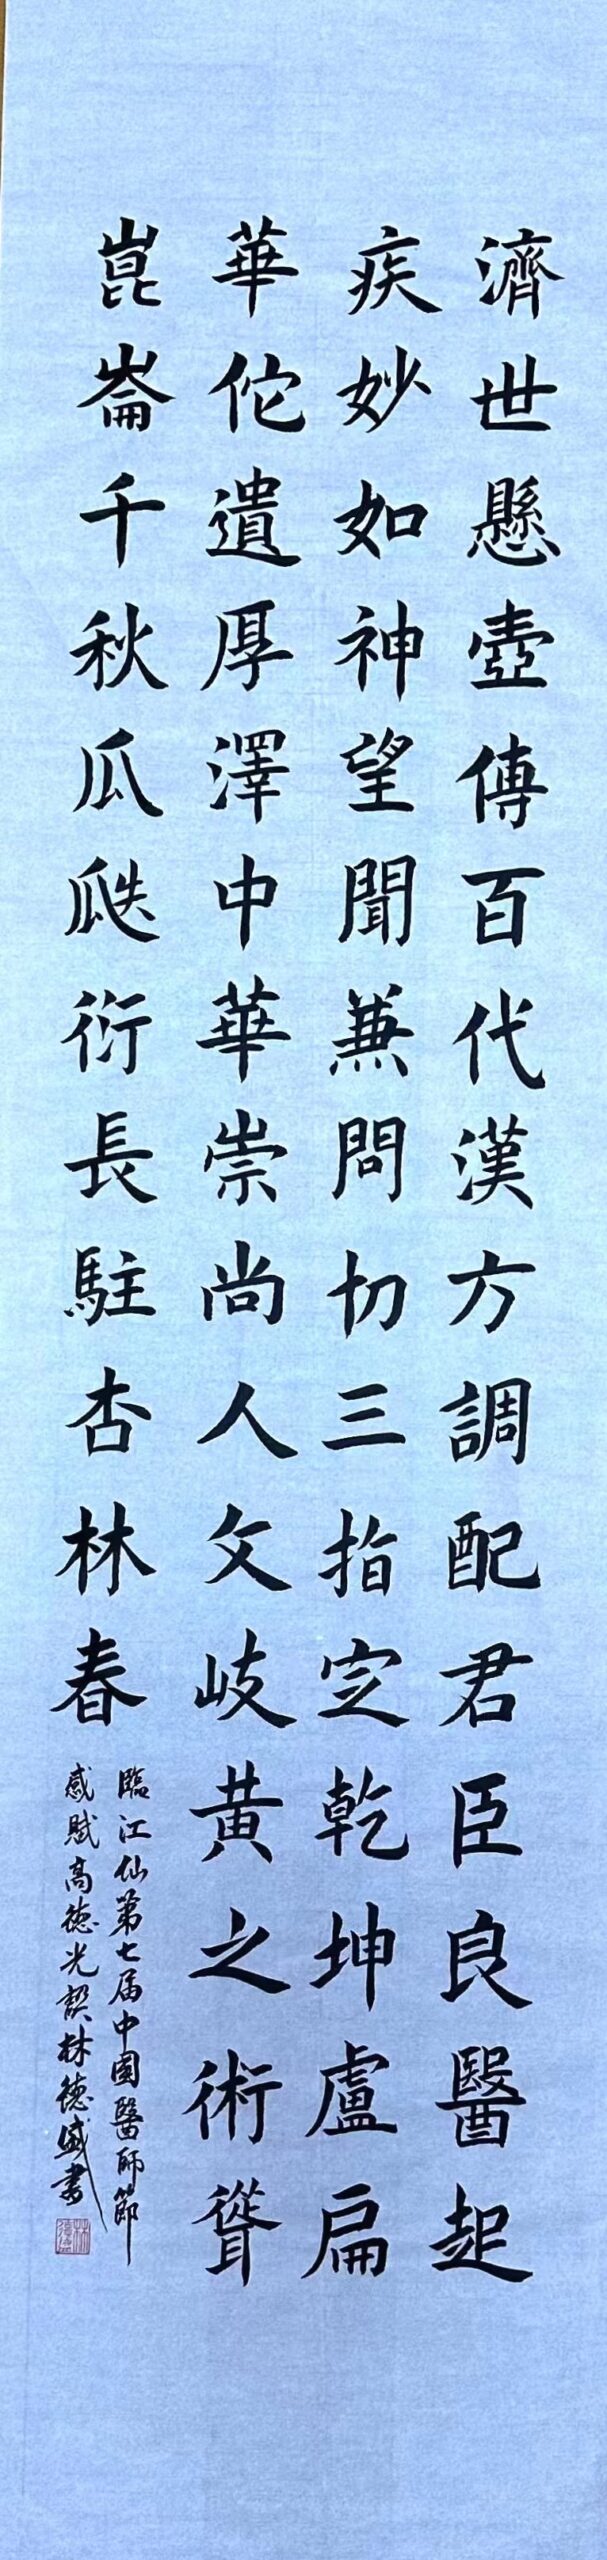 濟世懸壺傳百代漢方調配君臣良醫起
疾妙如神望聞兼問切三指定乾坤盧扁
華佗遺厚澤中華崇尚人文岐黃之術聳
崑崙千秋瓜瓞衍長駐杏林春
臨江仙第七届中國醫師節
感賦高德光撰林德盛書